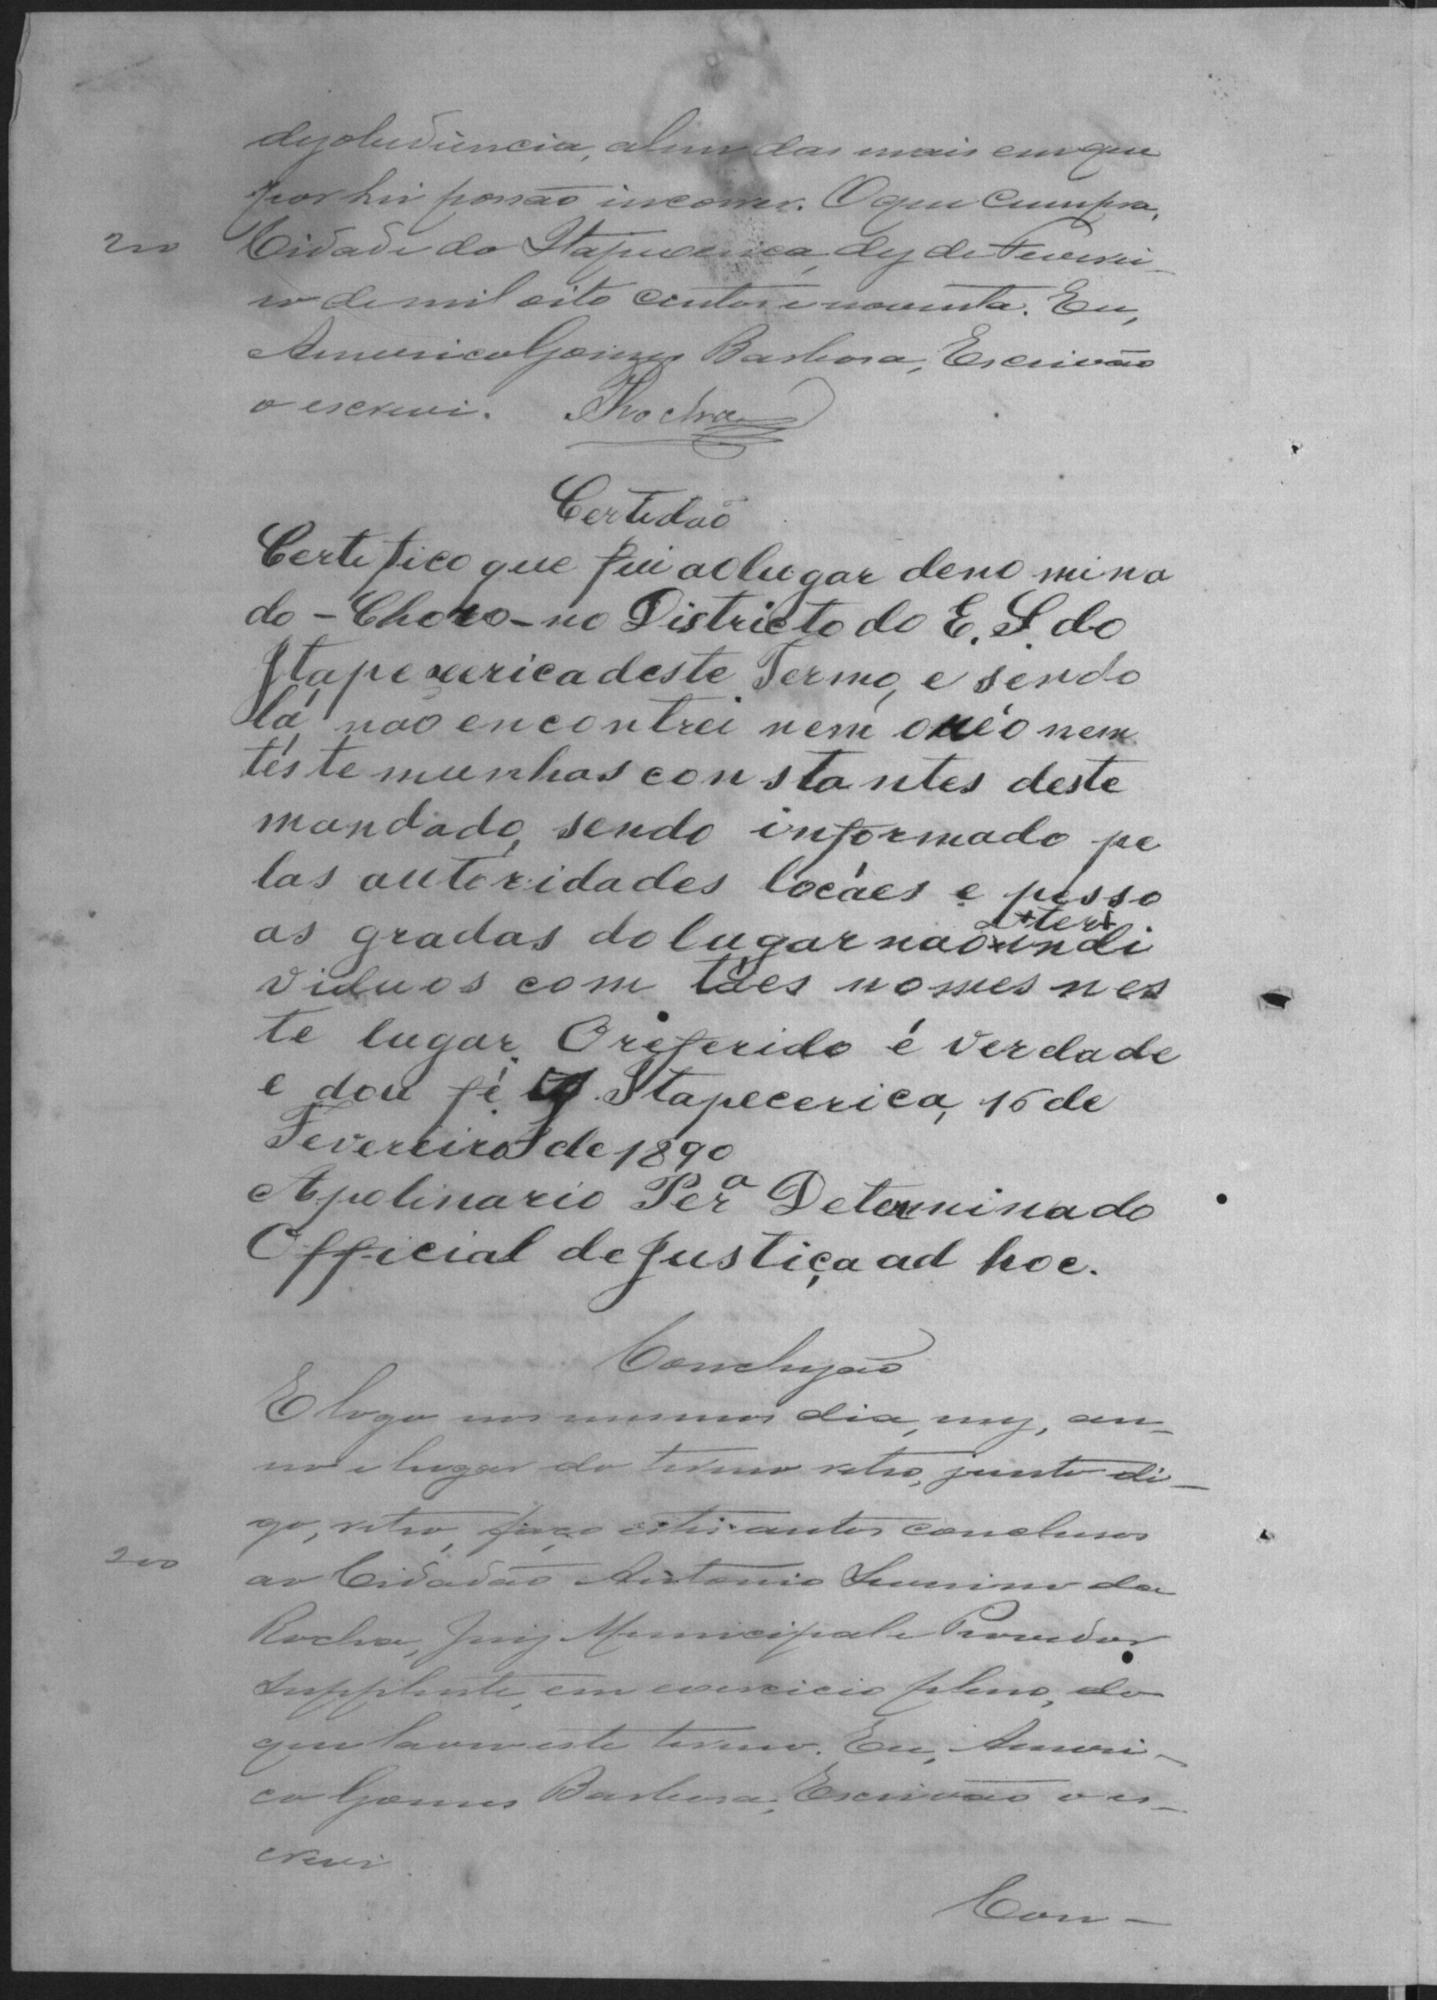 desobediencia, alem das mais em que
por lei possão incorrer. O que cumpra.
200 Cidade do Itapecerica, dez de Feverei-
ro de mil oito centos e noventa. Eu,
Americo Gomes Barbosa, Escrivão
o escrevi. Rocha
Certidão
Certifico que fui ao lugar denomina
do - Choro - no Districto do E. S. do
Itapecerica deste Termo, e sendo
lá não encontrei nem o réo nem
téstemunhas constantes deste
mandado, sendo informado pe
las autoridades locáes e pesso
as gradas do lugar nao x indi
+ ter +
viduos com táes nomes nes
te lugar. O referido é verdade
e dou fé. Itapecerica, 16 de
Fevereiro de 1890
Apolinario Perª Determinado
Official de Justiça ad hoc.
Conclusão
E logo nos mesmos dia, mez, an-
no e lugar do termo retro, junto di-
go, retro, faço estes autos conclusos
200 ao Cidadão Antonio Severino da
Rocha, Juiz Municipal e Provedor
supplente, em exercicio pleno, do
que lavro este termo. Eu, Ameri-
co Gomes Barbosa, Escrivão o es-
crevi
Con-